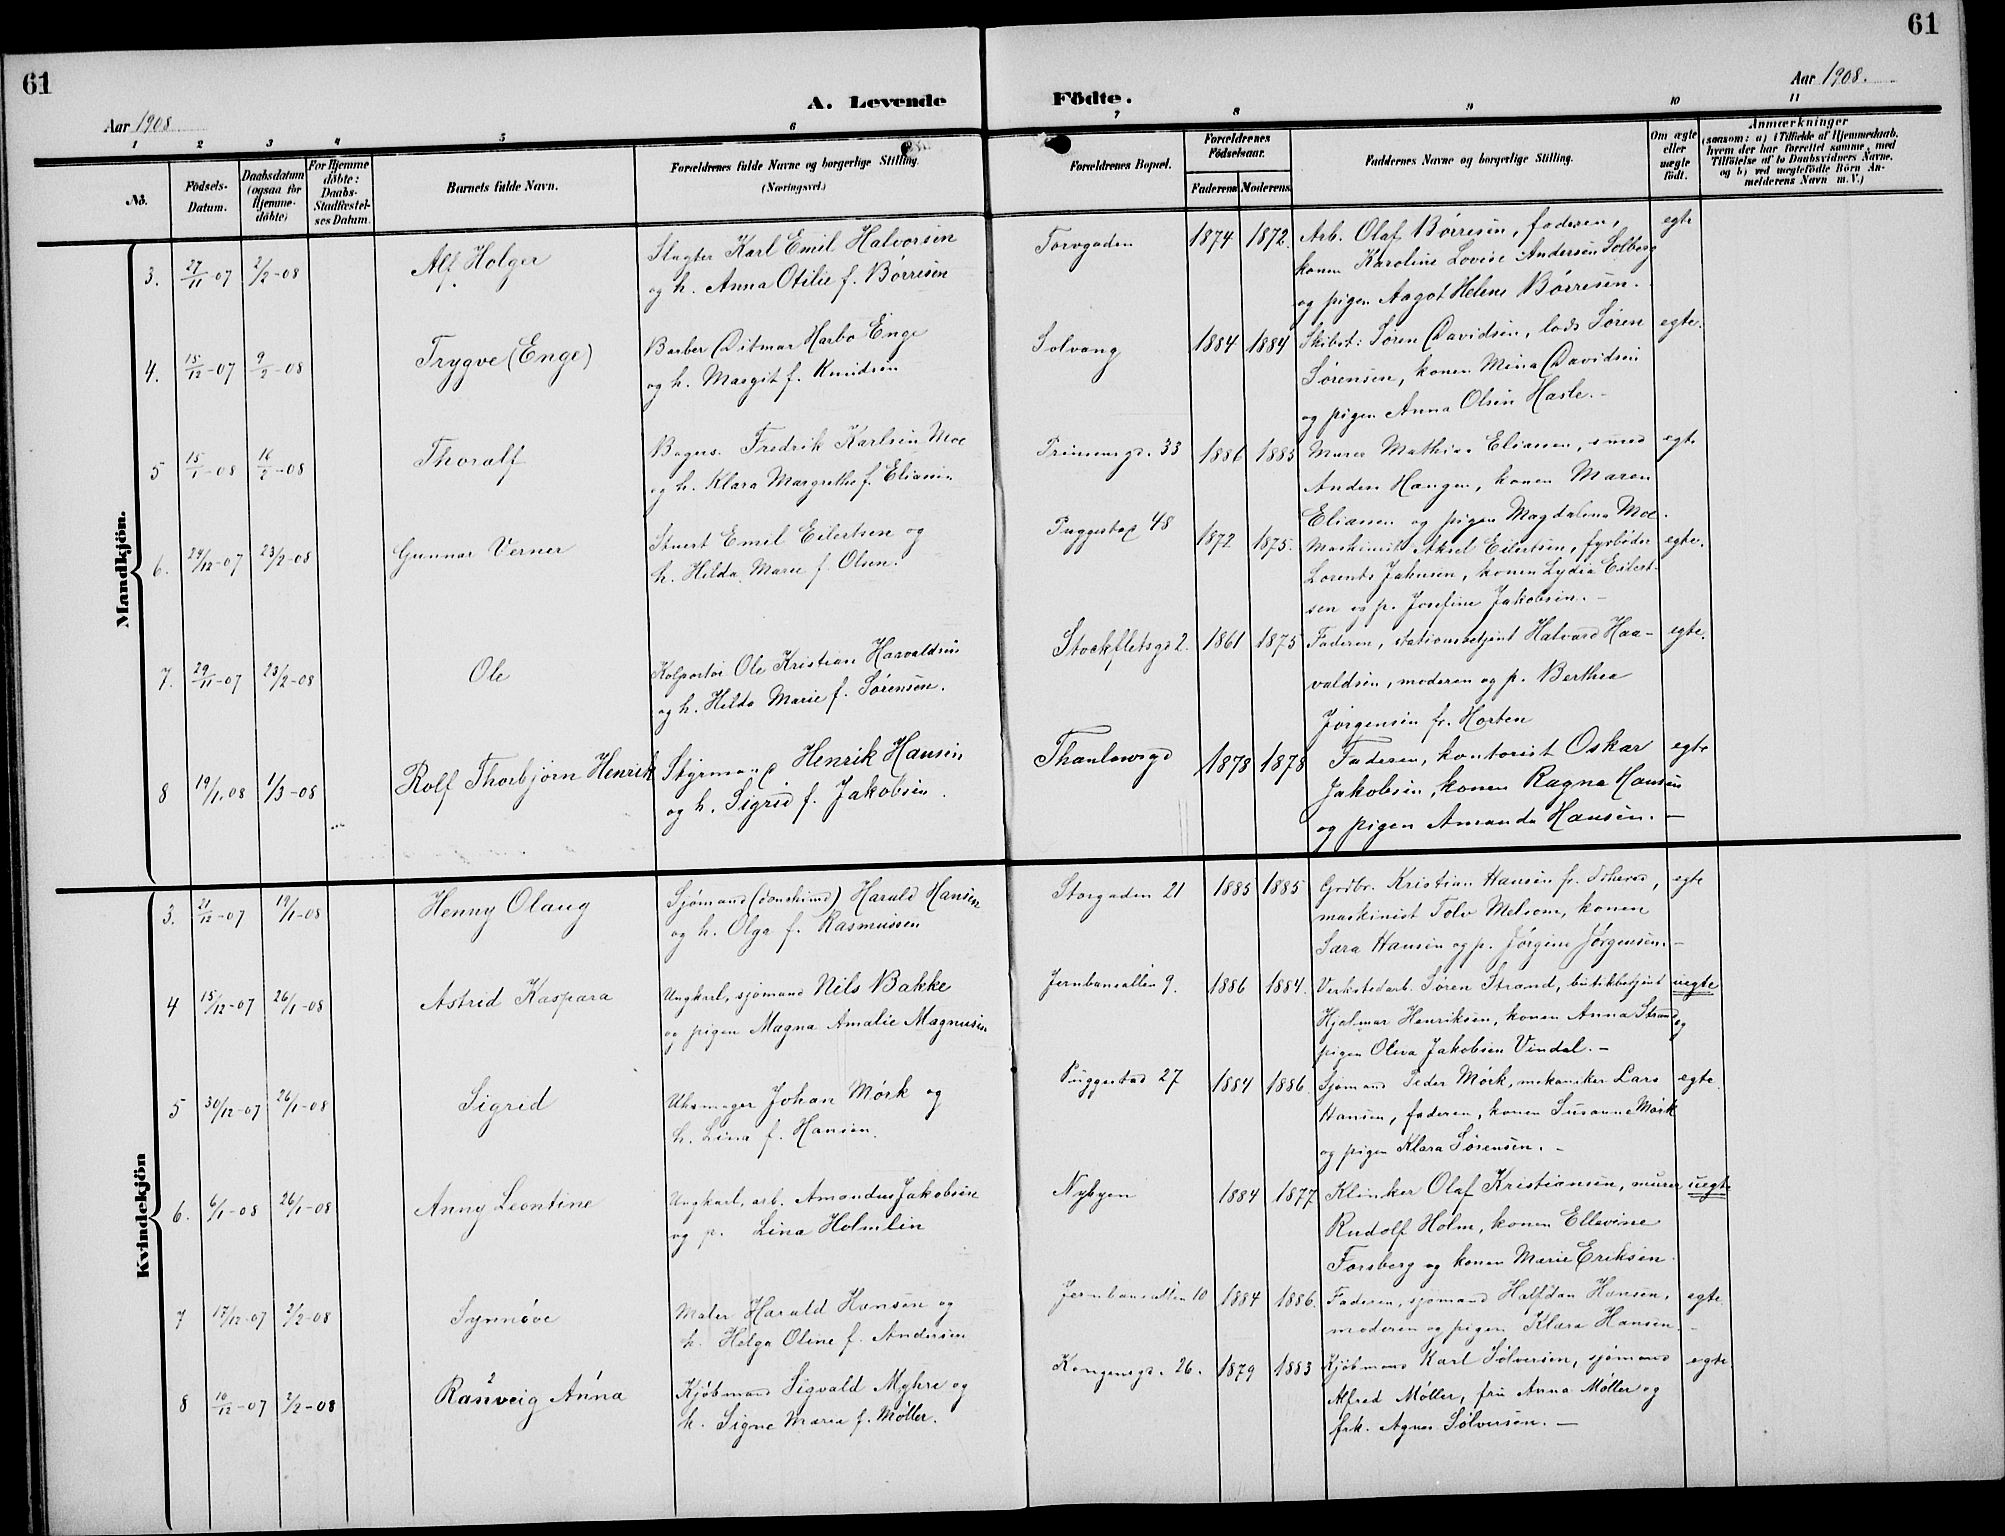 61
61
Aar 1908
A. Levende Födte.
Aar 1908.
1 2 3 4 5 6 7 8 9 10 11
No.
Födsels-Datum.
Daabsdatum (ogsaa for Hjemme-döbte)
For Hjemme döbte: Daabs-Stadfæstel-ses Datum.
Barnets fulde Navn.
Forældrenes fulde Navne og borgerlige Stilling. (Næringsvei.)
Forældrenes Bopæl.
Forældrenes Födselsaar.
Faderens Moderens
Faddernes Navne og borgerlige Stilling.
Om ægte eller uægte födt.
Anmærkninger
(saasom: a) i Tilfælde af Hjemmedaab, hvem der har forrettet samme, med Tilföielse af to Daabsvidners Navne, og b) ved uægtefödte Börn Anmelderens Navn m. V.)
Mandkjön.
3. 27/11-07 2/2-08 Alf Holger
Slagter Karl Emil Halvorsen
og h. Anna Otilie f. Börresen
Torvgaden 1874 1872
Arb. Olaf Börresen, faderen, egte
konen Karoline Lovise Andersen Solberg
og pigen Aagot Helene Börresen.
4. 15/12-07 9/2-08 Trygve (Enge)
Barber Ditmar Harbo Enge
og h. Margit f. Knudsen
Solvang 1884 1884
Skibst: Sören Davidsen, lods Sören egte.
Sörensen, konen Mina Davidsen
og pigen Anna Olsen Hasle.-
5 15/1-08 16/2-08 Thoralf
Bagers. Fredrik Karlsen Moe
og h. Klara Margrethe f. Eliasen
Prinsensgt. 33 1886 1885
Murer Mathias Eliasen, smed egte
Anders Haugen, konen Maren
Eliasen og pigen Magdalena Moe.
6. 24/12-07 23/2-08 Gunnar Verner
Stuert Emil Eilertsen og
h. Hilda Marie f. Olsen.
Puggestad 48 1872 1875.
Maskinist Aksel Eilertsen, fyrböder egte.
Lorents Jahnsen, konen Lydia Eilert-
sen og p. Josefine Jakobsen.-
7. 29/11-07 23/2-08 Ole
Kolportör Ole Kristian Haavaldsen
og h. Hilda Marie f. Sörensen.
Stockfletsgd 2. 1861 1875
Faderen, stationsbetjent Halvard Haa- egte.
valdsen, moderen og p. Berthea
Jörgensen fr. Horten
8 19/1.08 1/3-08 Rolf Thorbjörn Henrik
Styrmand Henrik Hansen
og h. Sigrid f. Jakobsen.
Thaulowsgd 1878 1878
Faderen, kontorist Oskar egte
Jakobsen, konen Ragna Hansen
og pigen Amanda Hansen.-
Kvindekjön
3. 21/12-07 19/1-08 Henny Olaug
Sjömand (donkimd) Harald Hansen
og h. Olga f. Rasmussen
Storgaden 21 1885 1885
Grdbr. Kristian Hansen fr. , egte
maskinist Tolv Melsom, konen
Sara Hansen og p. Jörgine Jörgensen.-
4 15/12-07 26/1-08 Astrid Kaspara
Ungkarl, sjömand Nils Bakke
og pigen Magna Amalie Magnusen
Jernbanealleen 9. 1886 1884.
Verkstedarb. Sören Strand, butikbetjent uegte
Hjalmar Henriksen, konen Anna Strand og
pigen Oleva Jakobsen Vindal.-
5 30/12-07 26/1-08 Sigrid
Uhrmager Johan Mörk og
h. Lina f. Hansen.
Puggestad 27 1884 1886.
Sjömand Peder Mörk, mekaniker Lars egte.
Hansen, faderen, konen Susanne Mörk
og pigen Klara Sörensen.-
6. 6/1-08 26/1-08 Anny Leontine
Ungkarl, arb. Amandus Jakobsen
og p. Lina Holmlin
Nybyen 1884 1877
Klinker Olaf Kristiansen, murer uegte
Rudolf Holm, konen Ellevine
Forsberg og konen Marie Eriksen
7 17/12-07 2/2-08 Synnöve
Maler Harald Hansen og
h. Helga Oline f. Andersen
Jernbanealleen 10 1884 1886.
Faderen, sjömand Halfdan Hansen, egte.
moderen og pigen Klara Hansen.-
8 10/12-07 2/2-08 Ranveig Anna
Kjöbmand Sigvald Myhre og
h. Signe Marie f. Möller.
Kongensgt. 26. 1879 1883
Kjöbmand Karl Sölversen, sjömand egte
Alfred Möller, fru Anna Möller og
frk. Agnes Sölversen.-